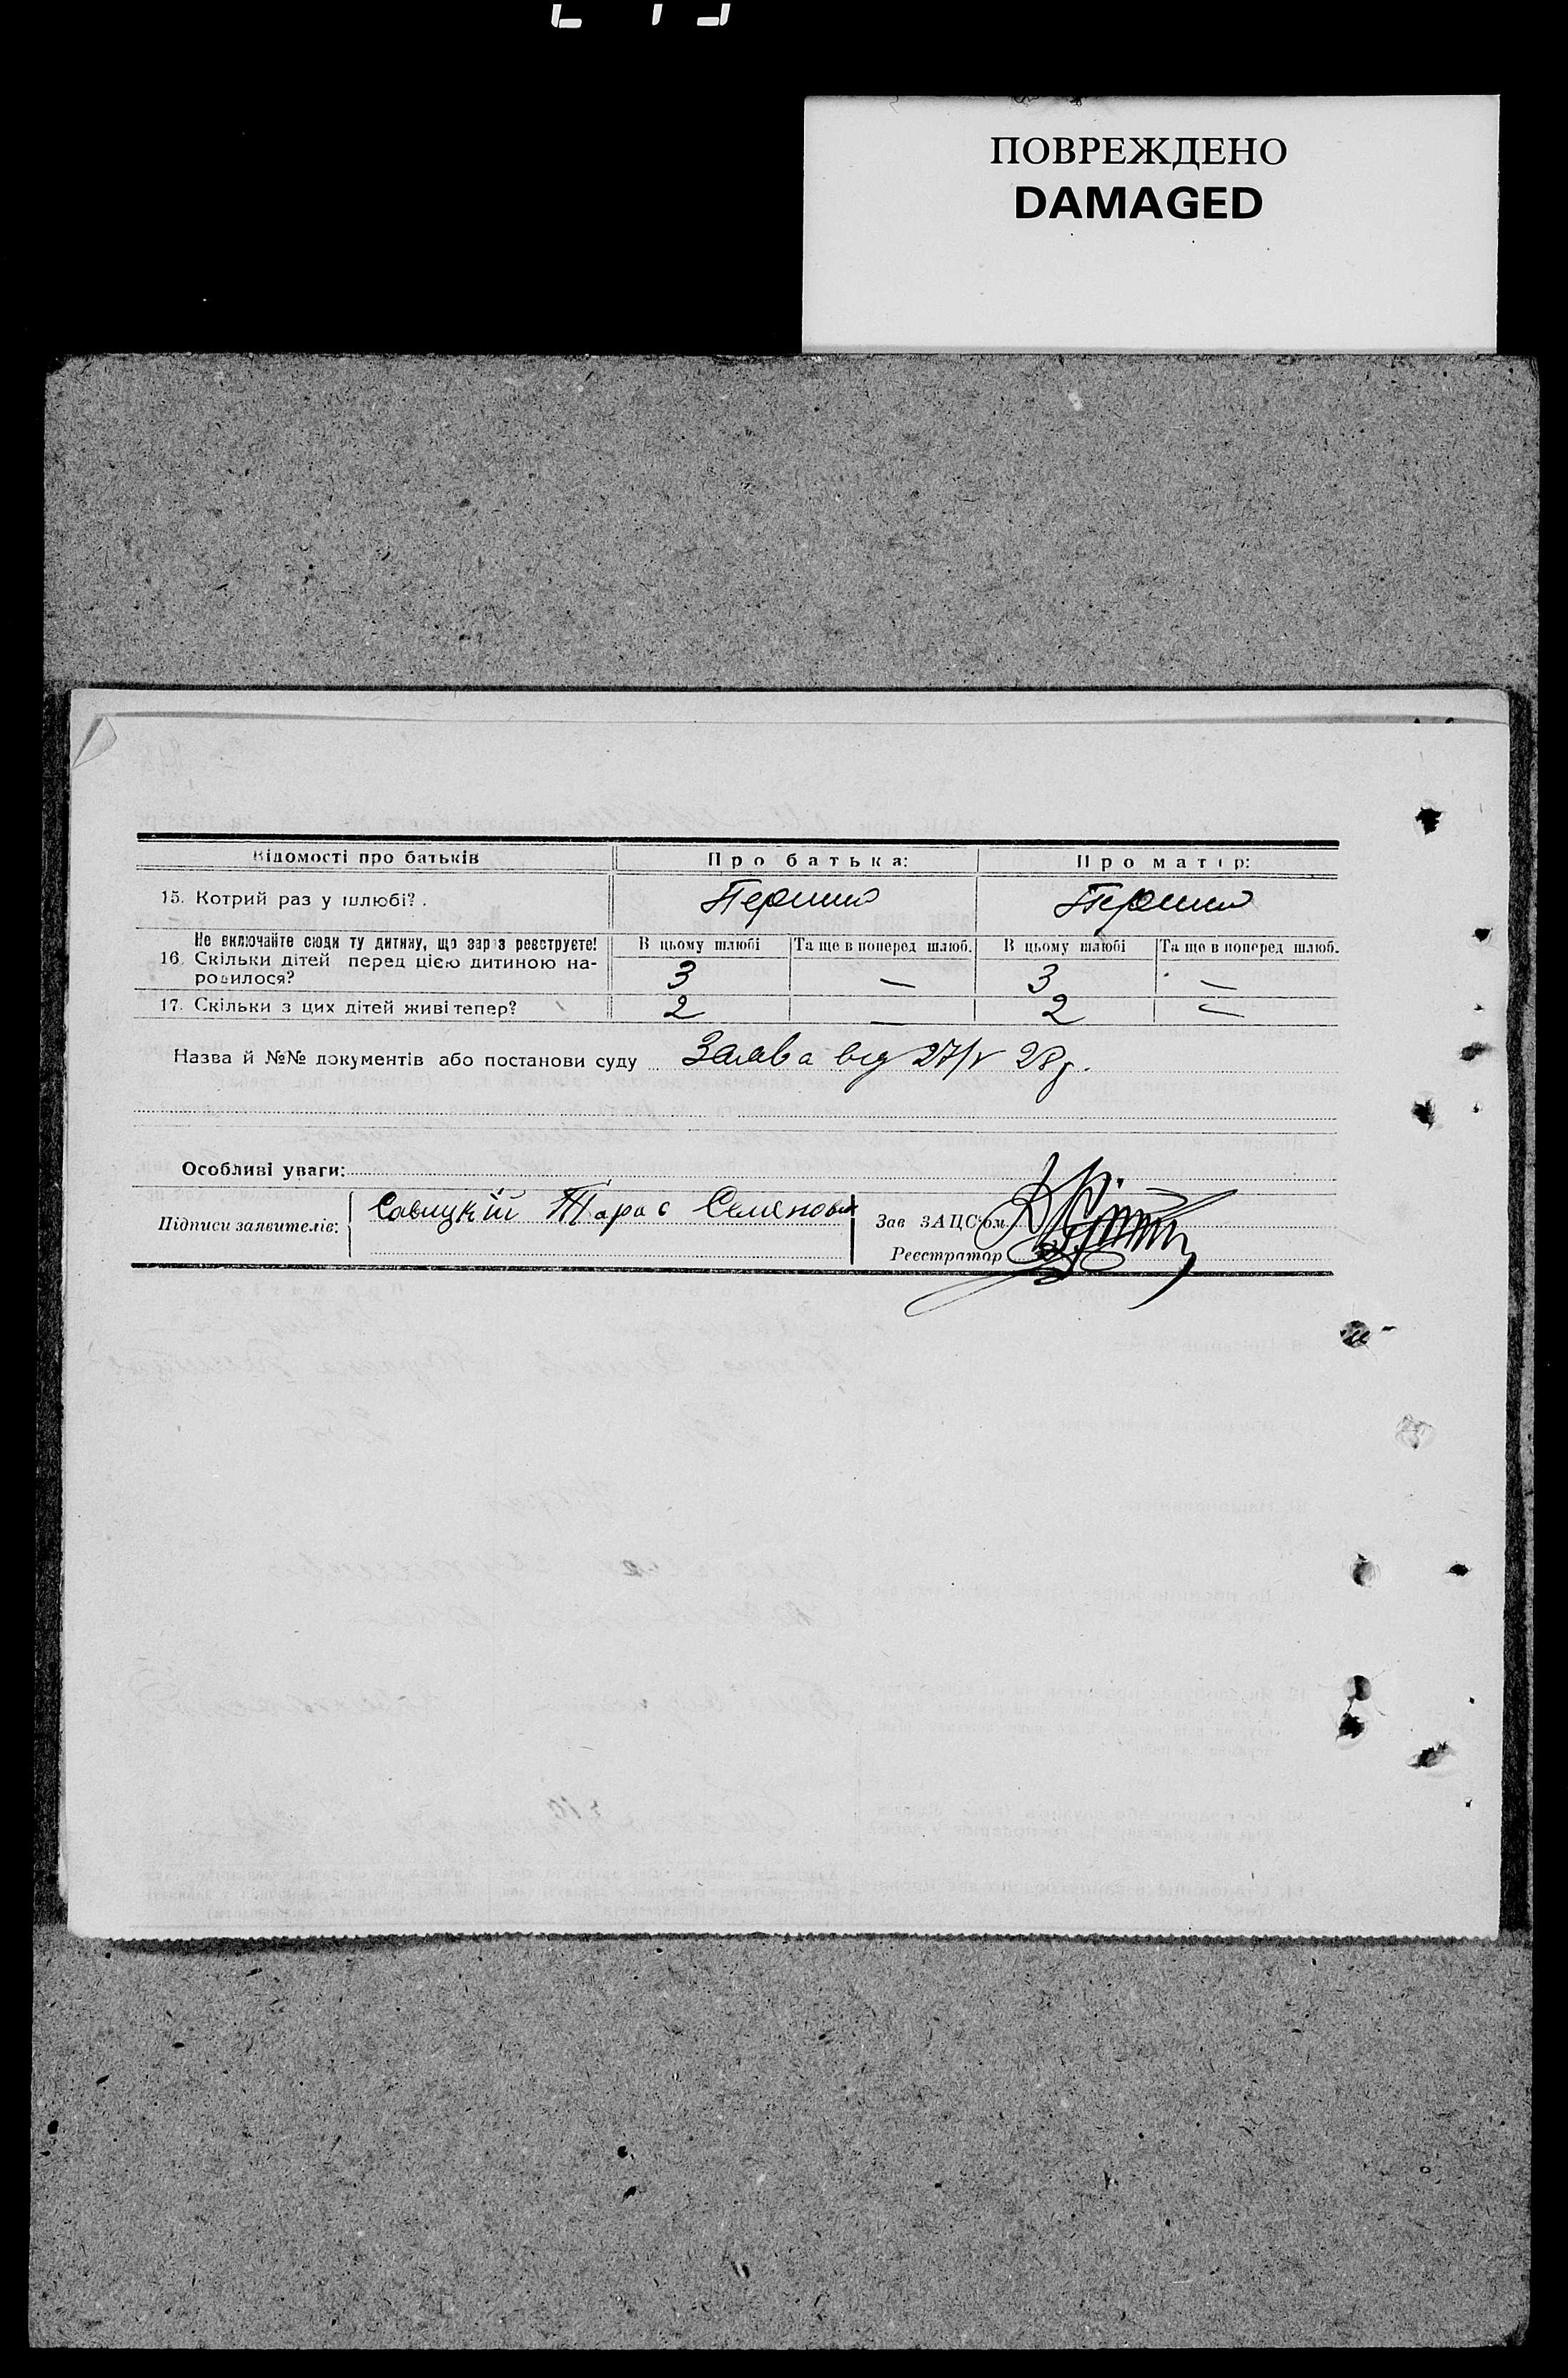 ПОВРЕЖДЕНО
DAMAGED
Відомості про батьків Про батька: Про матір:
15. Котрий раз у шлюбі? Перший Перший
Не включайте сюди ту дитину, що зараз реєструєте!
В цьому шлюбі Та ще в поперед. шлюб. В цьому шлюбі Та ще в поперед. шлюб.
16. Скільки дітей перед цією дитиною на-
родилося? 3 — 3 —
17. Скільки з цих дітей живі тепер? 2 — 2 —
Назва й №№ документів або постанови суду Заява від 27/V 28 р.
Особливі уваги:
Підписи заявителів: Савицкій Тарас Семенович
Зав ЗАЦС'ом
Реєстратор